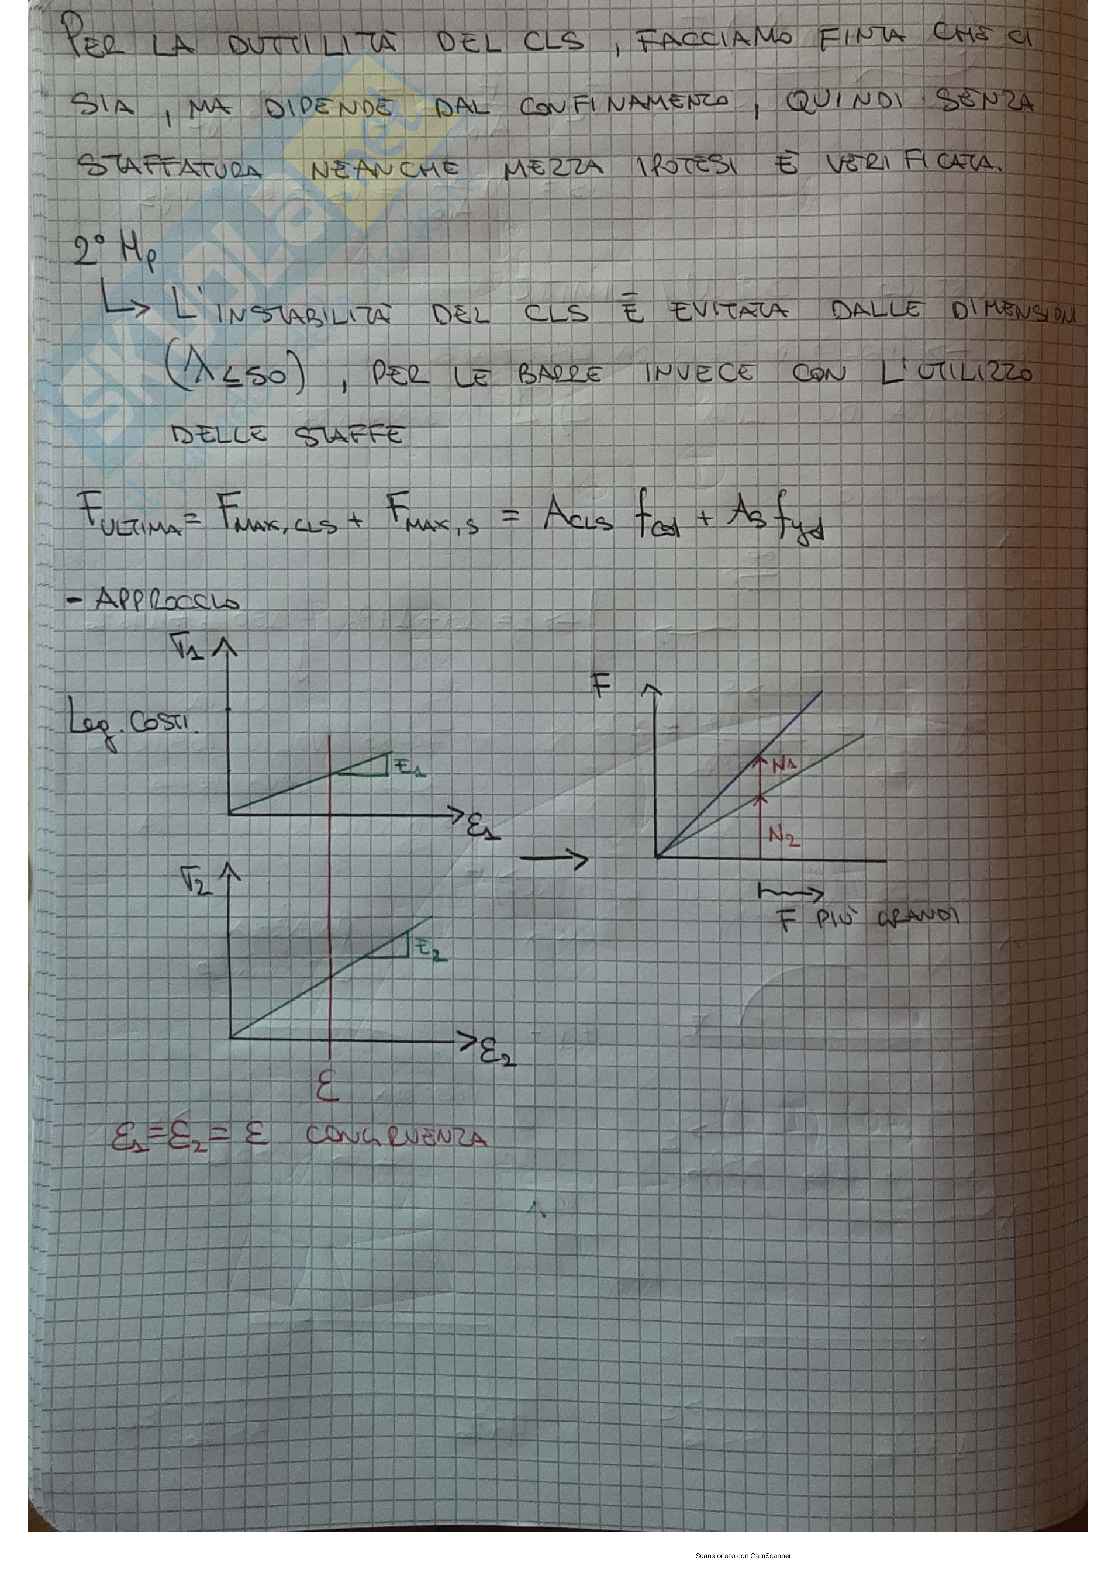 PER LA DUTTILITÀ DEL CLS, FACCIAMO FINTA CHE CI
SIA, MA DIPENDE DAL CONFINAMENTO, QUINDI SENZA
STAFFATURA NEANCHE MEZZA IPOTESI È VERIFICATA.
2° Hp
↳ L'INSTABILITÀ DEL CLS È EVITATA DALLE DIMENSIONI
(λ≤50), PER LE BARRE INVECE CON L'UTILIZZO
DELLE STAFFE
F_ULTIMA = F_MAX,CLS + F_MAX,S = A_CLS f_cd + A_S f_yd
- APPROCCIO
σ1
Leg. COSTI.
E1
ε1
σ2
E2
ε2
ε
F
N1
N2
F PIÙ GRANDI
ε1 = ε2 = ε CONGRUENZA
SKUOLA.net
Scansionato con CamScanner